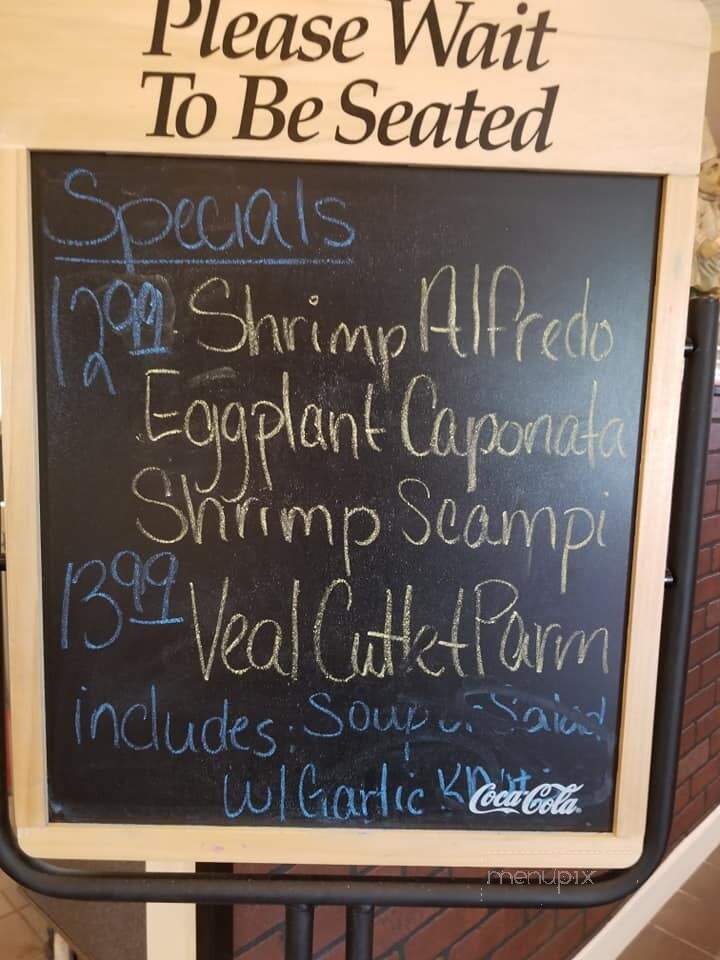 Please Wait
To Be Seated
Specials
12.99 Shrimp Alfredo
Eggplant Caponata
Shrimp Scampi
13.99 Veal Cutlet Parm
includes: Soup or Salad
w/ Garlic Knot
Coca-Cola
menupix